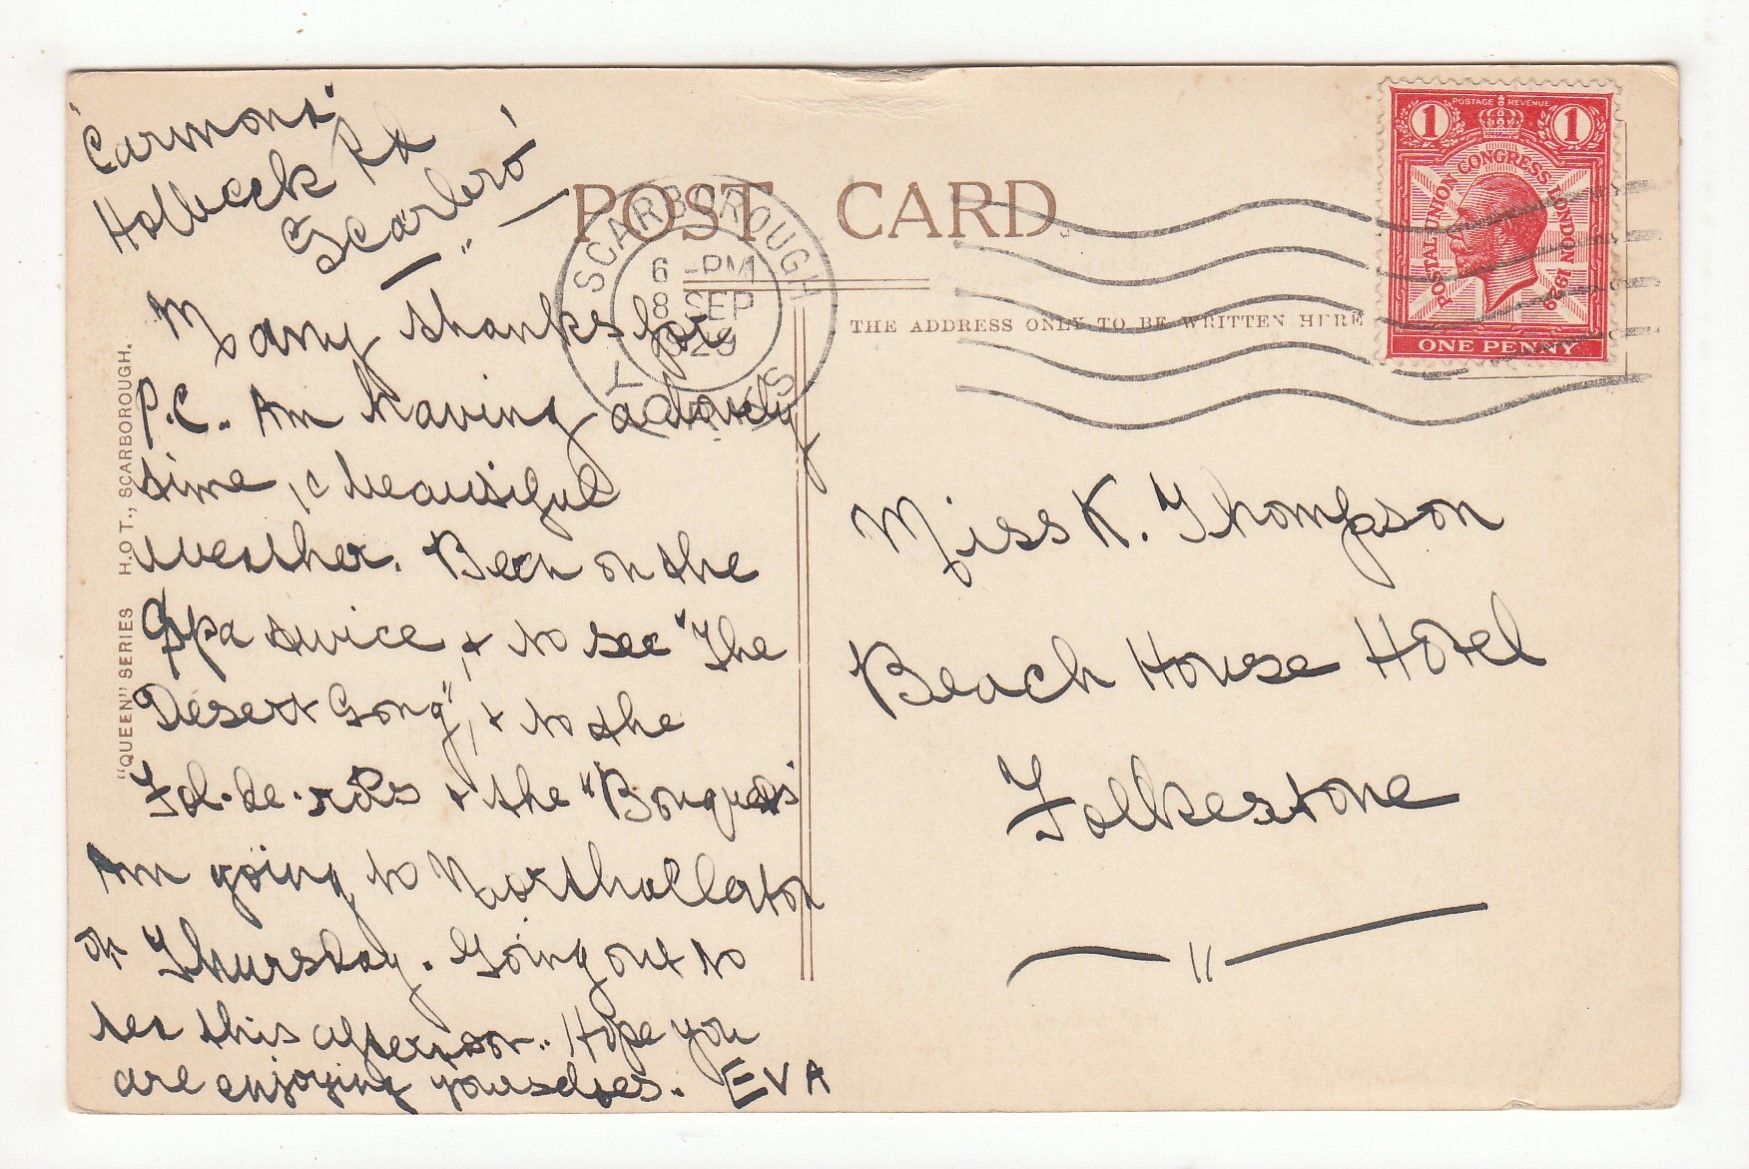 'Carmona'
Holbeck Rd
Scarbro'
Many thanks for
P.C. Am having a lovely
time, & beautiful
weather. Been on the
Spa twice, & to see "The
Desert Song", & to the
Fol-de-rols & the "Bouquets"
Am going to Northallerton
on Thursday. Going out to
tea this afternoon. Hope you
are enjoying yourselves. EVA
"QUEEN" SERIES H.O.T., SCARBOROUGH.
POST CARD.
THE ADDRESS ONLY TO BE WRITTEN HERE
SCARBOROUGH
6 - PM
8 SEP
1929
YORKS
POSTAGE REVENUE
1 1
POSTAL UNION CONGRESS LONDON 1929
ONE PENNY
Miss K. Thompson
Beach House Hotel
Folkestone